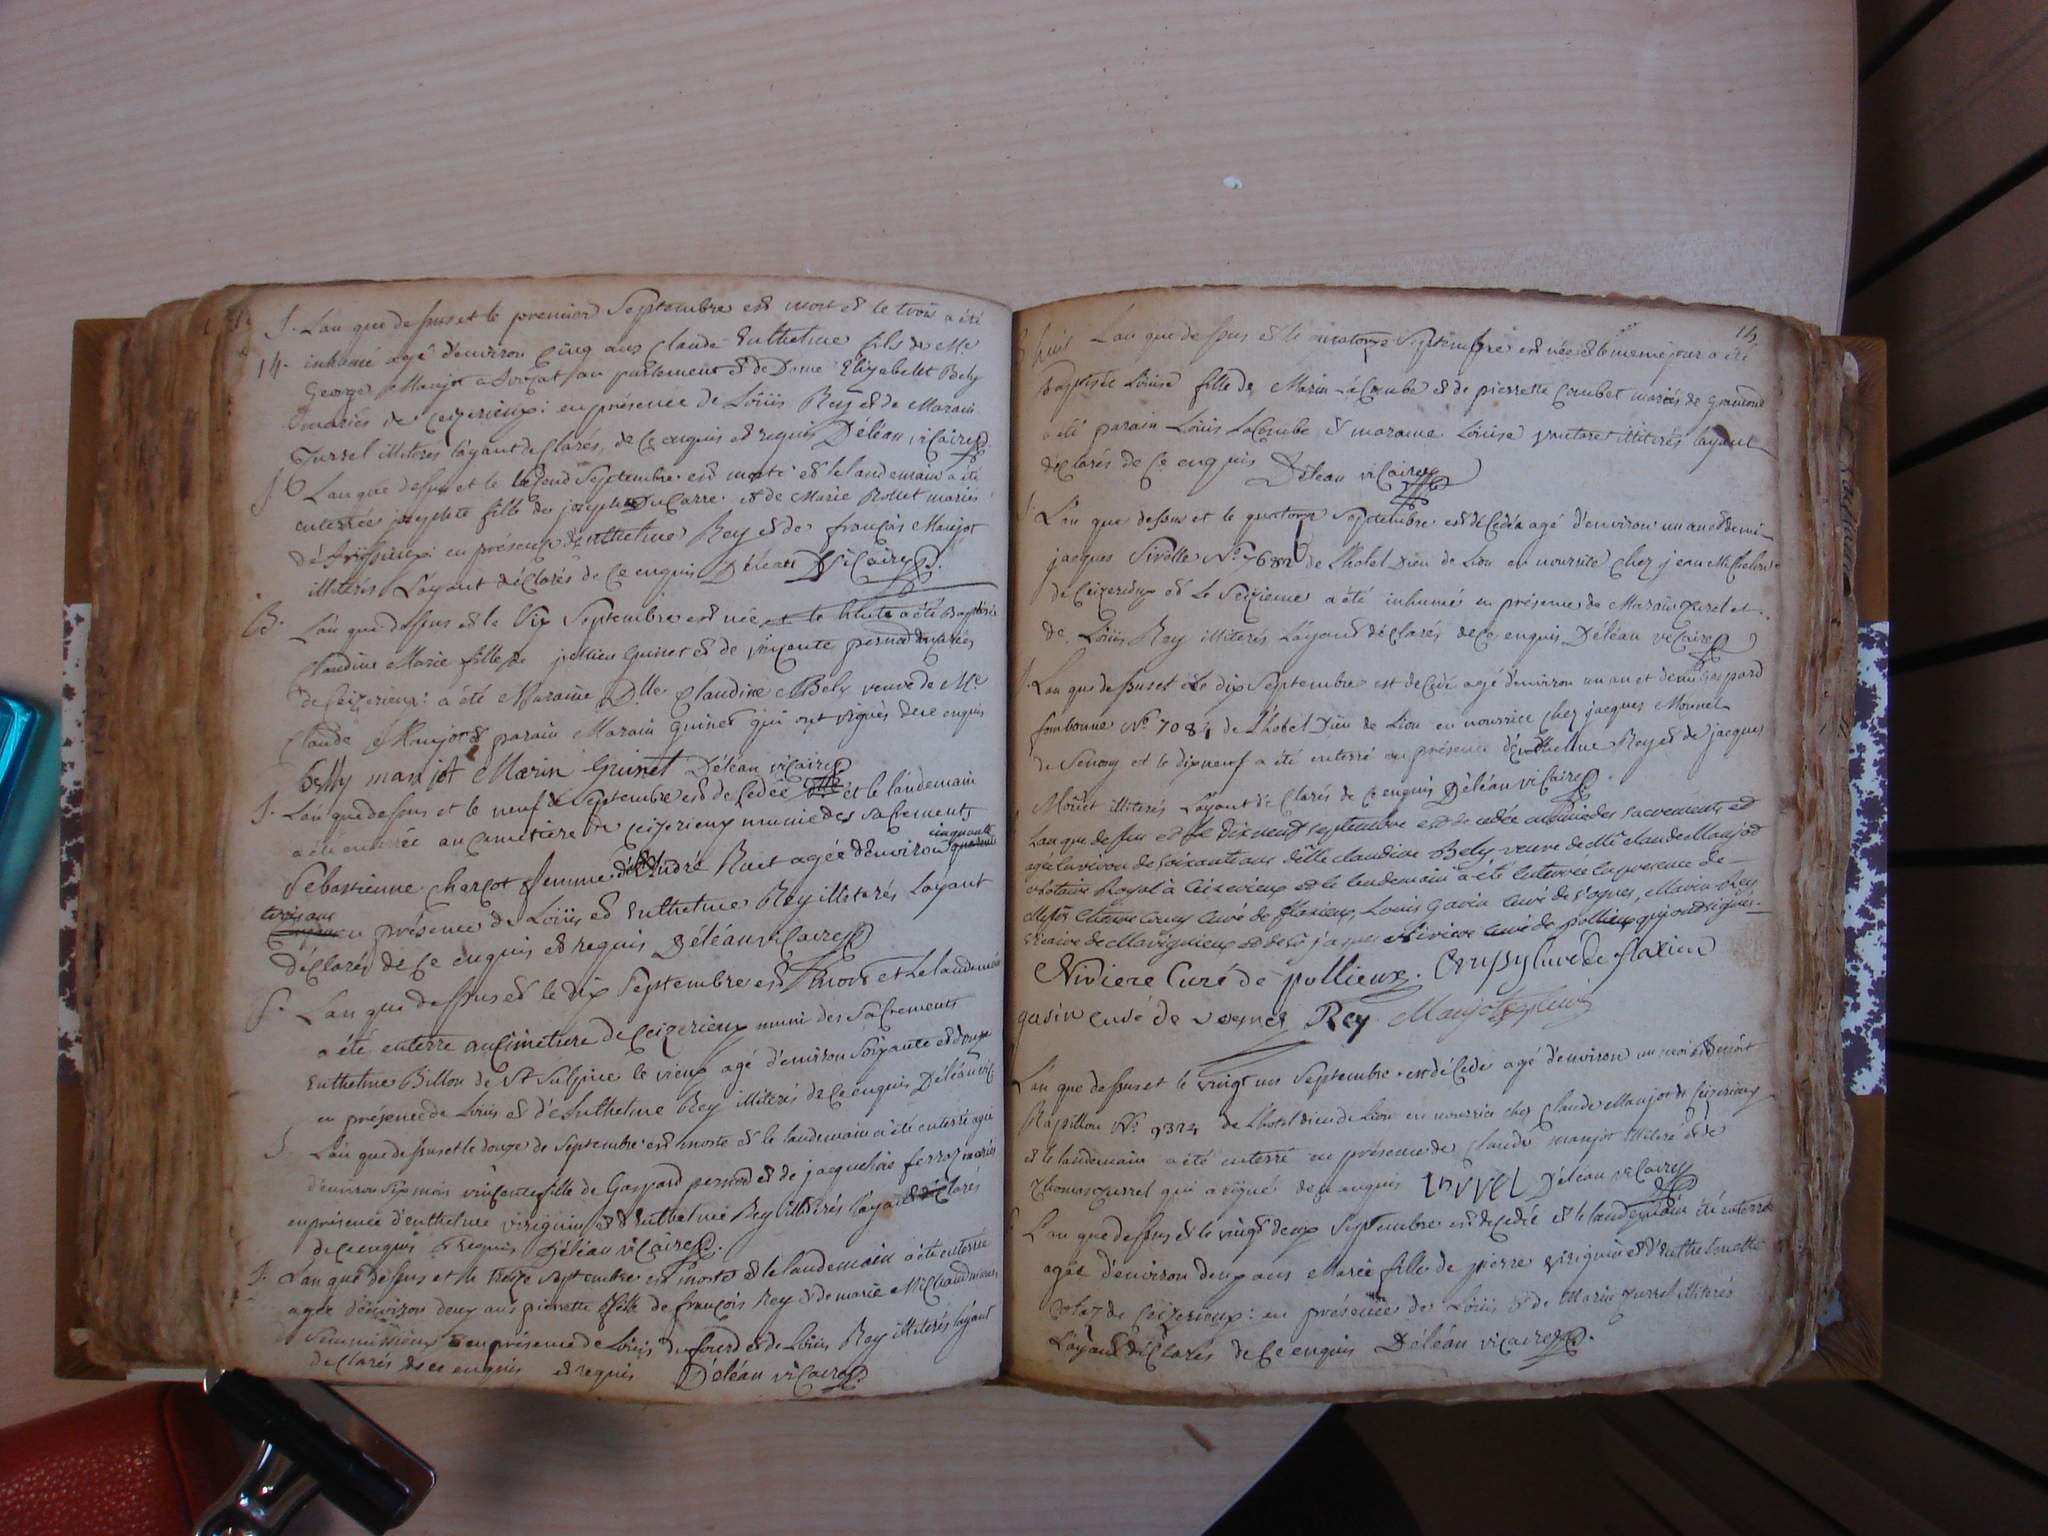 S. L'an que dessus et le premier Septembre est mort et le trois a été
14. inhumé agé d'environ Cinq ans Claude Enthelme fils de Me
George Manjot avocat au parlement et de Dame Elizabelet Bely
mariés de Ceizerieux: en présence de Loüis Rey et de Marain
Jurrel illiterés layant declarés, de ce enquis et requis Déléan vicaire
S. L'an que dessus et le segond Septembre est morte et le landemain a été
enterrée josephte fille de joseph DuCarre et de Marie Rollet mariés
en présence d'Enthelme Rey et de françois Manjot
illiterés Layant déclarés de Ce enquis Déléan Vicaire
B. L'an que dessus et le Six Septembre est née et le a été Baptisée
Claudine Marie fille de jullien Guinet et de vinçente pernod mariés
de Ceizerieux: a été Maraine Dlle Claudine Bely veuve de Me
Claude Manjot et parain Marain Guinet qui ont signés de ce enquis
belly manjot Marin Guinet Déléan vicaire
S. L'an que dessus et le neuf Septembre est decedée et le landemain
a été enterrée au Cametiere de Ceizerieux munie des sacrements
cinquante
Sebastienne Chargot femme d'André Rait agée d'environ quarante
trois ans
en présence de Loüis et Enthelme Rey illiterés Layant
déclarés de Ce enquis et requis Déléan vicaire
S. L'an que dessus et le dix Septembre est mort et le landemain
a été enterre au Cimetiere de Ceizerieux muni des Sacrements
Enthelme Billon de St Sulpice le vieux agé d'environ Soixante et douze
en présence de Loüis et d'Enthelme Rey illiterés de Ce enquis Déléan vic:
S. L'an que dessus et le douze de Septembre est morte et le landemain a été enterré agée
d'environ six mois vinçente fille de Gaspard pernod et de jacqueline ferroz mariés
en présence d'enthelme viriguin et d'Enthelme Rey illiterés layant déclarés
de Ce enquis et requis Déléan vicaire.
S. L'an que dessus et le treize septembre est morte et le landemain a été enterrée
agée d'environ deux ans pierrette fille de françois Rey et de marie Michaud mariés
en présence de Loüis du four et de Loüis Rey illiterés layant
declarés de ce enquis et requis Déléan vicaire.
14.
L'an que dessus et le quatorze Septembre est née et le meme jour a été
baptisée Loüise fille de Marin LaCombe et de pierrette Combet mariés de
a été parain Loüis LaCombe et maraine Loüise illiterés layant
déclarés de Ce enquis Déléan vicaire
L'an que dessus et le quatorze Septembre est décédé agé d'environ un an et demi
jacques Sivolle No 7682 de l'hotel Dieu de Lion en nourrice Chez jean Michelon
de Ceizerieux et Le Seizieme a été inhumés en présence de Marain Jurel et
de Loüis Rey illiterés Layant déclarés de Ce enquis Déléan vicaire
L'an que dessus et le dix Septembre est decedé agé d'environ un an et demi Gaspard
fombonne No 7084 de l'hotel Dieu de Lion en nourrice Chez jacques Monnet
de Senoy et le dixneuf a été enterré en présence d'Enthelme Rey et de jacques
Monnet illiterés Layant déclarés de Ce enquis Déléan vicaire.
L'an que dessus et le dixneuf septembre est decedée munie des sacrements et
agée environ de soixante ans dlle claudine Bely veuve de Me claude Manjot
Notaire Royal à Ceizerieux et le lendemain a été enterrée en presence de
Mssrs curé de flaxieux, Louis Gavin curé de vognes, Marin Rey
vicaire de Marignieux et de Sr jaques Riviere curé de pollieux qui ont signes.
Riviere Curé de pollieux. Crussy curé de flaxieu
gavin curé de vognes Rey Manjot
L'an que dessus et le vingt un Septembre est décédé agé d'environ un mois Benoit
Rapillon No 9324 de l'hotel dieu de Lion en nourrice chez Claude Manjot de Ceizerieux
et le landemain a été enterré en présence de Claude manjot illiteré et de
Thomas Jurrel qui a signé de ce enquis Jurrel Déléan vicaire
L'an que dessus et le vingt deux Septembre est decedée et le landemain été enterrée
agée d'environ deux ans Marie fille de pierre viriguin et d'Enthelmette
de Ceizerieux: en présence de Loüis et de Marin Jurrel illiterés
Layant déclarés de Ce enquis Déléan vicaire.